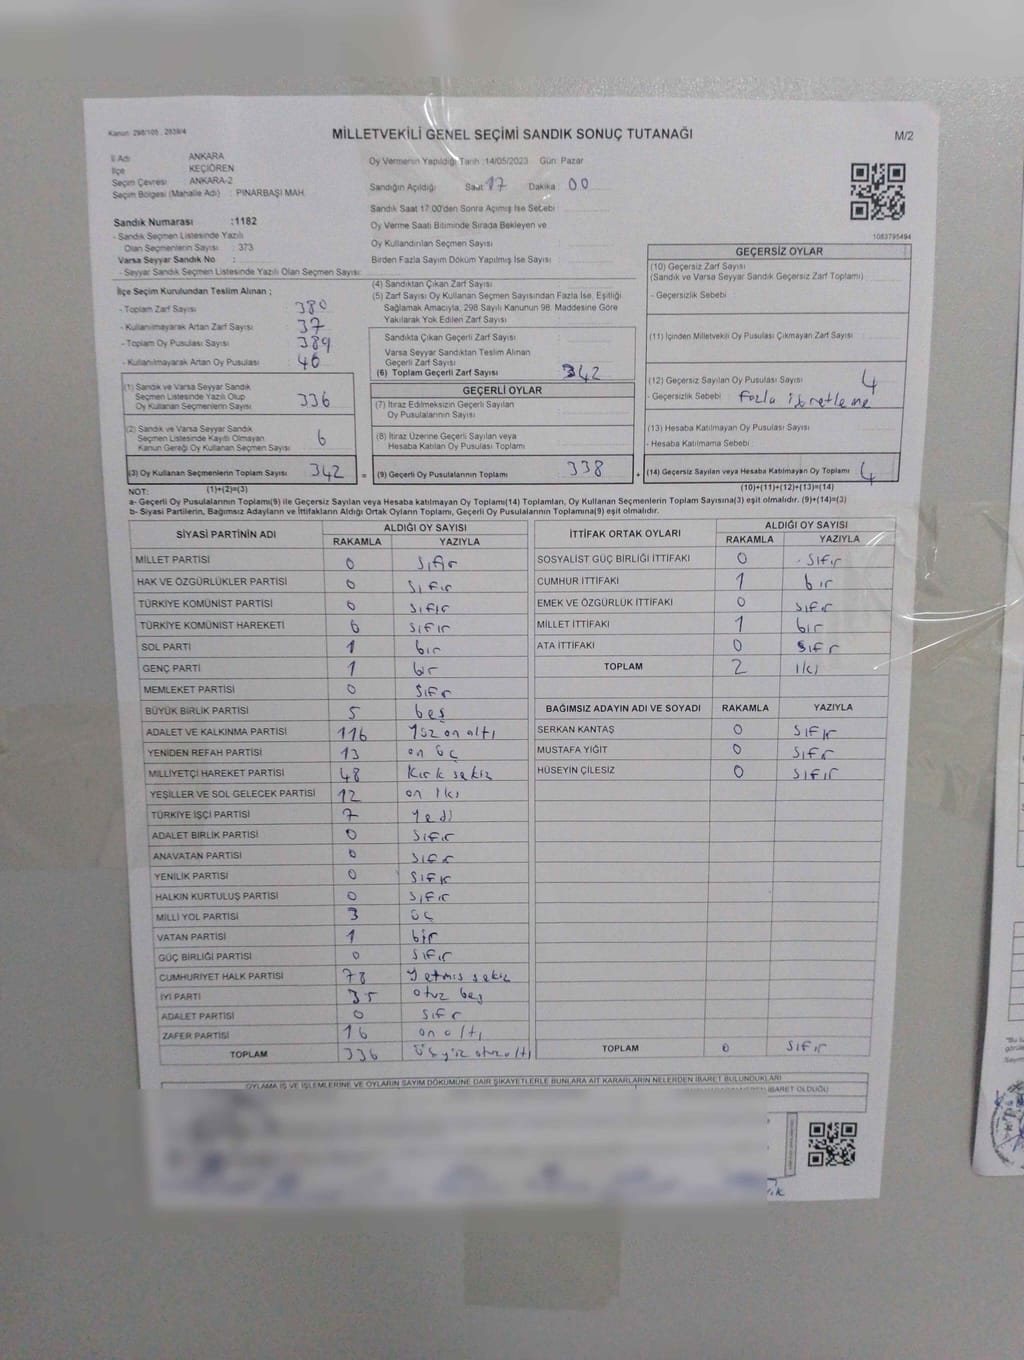 Kanun: 298/105 , 2839/4
MİLLETVEKİLİ GENEL SEÇİMİ SANDIK SONUÇ TUTANAĞI
M/2
İl Adı ANKARA
İlçe KEÇİÖREN
Seçim Çevresi ANKARA-2
Seçim Bölgesi (Mahalle Adı) : PINARBAŞI MAH.
Sandık Numarası :1182
- Sandık Seçmen Listesinde Yazılı
Olan Seçmenlerin Sayısı : 373
Varsa Seyyar Sandık No :
- Seyyar Sandık Seçmen Listesinde Yazılı Olan Seçmen Sayısı:
Oy Vermenin Yapıldığı Tarih :14/05/2023 Gün: Pazar
Sandığın Açıldığı Saat 17 Dakika 00
Sandık Saat 17:00'den Sonra Açımış İse Sebebi
Oy Verme Saati Bitiminde Sırada Bekleyen ve
Oy Kullandırılan Seçmen Sayısı
Birden Fazla Sayım Döküm Yapılmış İse Sayısı :
1083795494
İlçe Seçim Kurulundan Teslim Alınan ;
- Toplam Zarf Sayısı 380
- Kullanılmayarak Artan Zarf Sayısı 37
- Toplam Oy Pusulası Sayısı 389
- Kullanılmayarak Artan Oy Pusulası 46
(1) Sandık ve Varsa Seyyar Sandık
Seçmen Listesinde Yazılı Olup
Oy Kullanan Seçmenlerin Sayısı 336
(2) Sandık ve Varsa Seyyar Sandık
Seçmen Listesinde Kayıtlı Olmayan
Kanun Gereği Oy Kullanan Seçmen Sayısı 6
(3) Oy Kullanan Seçmenlerin Toplam Sayısı 342 =
(1)+(2)=(3)
(4) Sandıktan Çıkan Zarf Sayısı
(5) Zarf Sayısı Oy Kullanan Seçmen Sayısından Fazla İse, Eşitliği
Sağlamak Amacıyla, 298 Sayılı Kanunun 98. Maddesine Göre
Yakılarak Yok Edilen Zarf Sayısı
Sandıkta Çıkan Geçerli Zarf Sayısı
Varsa Seyyar Sandıktan Teslim Alınan
Geçerli Zarf Sayısı
(6) Toplam Geçerli Zarf Sayısı 342
GEÇERLİ OYLAR
(7) İtiraz Edilmeksizin Geçerli Sayılan
Oy Pusulalarının Sayısı
(8) İtiraz Üzerine Geçerli Sayılan veya
Hesaba Katılan Oy Pusulası Toplamı
(9) Geçerli Oy Pusulalarının Toplamı 338 +
GEÇERSİZ OYLAR
(10) Geçersiz Zarf Sayısı
(Sandık ve Varsa Seyyar Sandık Geçersiz Zarf Toplamı)
- Geçersizlik Sebebi
(11) İçinden Milletvekili Oy Pusulası Çıkmayan Zarf Sayısı
(12) Geçersiz Sayılan Oy Pusulası Sayısı 4
- Geçersizlik Sebebi : Fazla işretleme
(13) Hesaba Katılmayan Oy Pusulası Sayısı
- Hesaba Katılmama Sebebi
(14) Geçersiz Sayılan veya Hesaba Katılmayan Oy Toplamı 4
(10)+(11)+(12)+(13)=(14)
NOT:
a- Geçerli Oy Pusulalarının Toplamı(9) ile Geçersiz Sayılan veya Hesaba katılmayan Oy Toplamı(14) Toplamları, Oy Kullanan Seçmenlerin Toplam Sayısına(3) eşit olmalıdır. (9)+(14)=(3)
b- Siyasi Partilerin, Bağımsız Adayların ve İttifakların Aldığı Ortak Oyların Toplamı, Geçerli Oy Pusulalarının Toplamına(9) eşit olmalıdır.
SİYASİ PARTİNİN ADI ALDIĞI OY SAYISI
RAKAMLA YAZIYLA
MİLLET PARTİSİ 0 sıfır
HAK VE ÖZGÜRLÜKLER PARTİSİ 0 sıfır
TÜRKİYE KOMÜNİST PARTİSİ 0 sıfır
TÜRKİYE KOMÜNİST HAREKETİ 0 sıfır
SOL PARTİ 1 bir
GENÇ PARTİ 1 bir
MEMLEKET PARTİSİ 0 sıfır
BÜYÜK BİRLİK PARTİSİ 5 beş
ADALET VE KALKINMA PARTİSİ 116 Yüz on altı
YENİDEN REFAH PARTİSİ 13 on üç
MİLLİYETÇİ HAREKET PARTİSİ 48 Kırk sekiz
YEŞİLLER VE SOL GELECEK PARTİSİ 12 on iki
TÜRKİYE İŞÇİ PARTİSİ 7 Yedi
ADALET BİRLİK PARTİSİ 0 sıfır
ANAVATAN PARTİSİ 0 sıfır
YENİLİK PARTİSİ 0 sıfır
HALKIN KURTULUŞ PARTİSİ 0 sıfır
MİLLİ YOL PARTİSİ 3 üç
VATAN PARTİSİ 1 bir
GÜÇ BİRLİĞİ PARTİSİ 0 sıfır
CUMHURİYET HALK PARTİSİ 78 Yetmis sekiz
İYİ PARTİ 35 otuz beş
ADALET PARTİSİ 0 sıfır
ZAFER PARTİSİ 16 on altı
TOPLAM 336 üç yüz otuz altı
İTTİFAK ORTAK OYLARI ALDIĞI OY SAYISI
RAKAMLA YAZIYLA
SOSYALİST GÜÇ BİRLİĞİ İTTİFAKI 0 sıfır
CUMHUR İTTİFAKI 1 bir
EMEK VE ÖZGÜRLÜK İTTİFAKI 0 sıfır
MİLLET İTTİFAKI 1 bir
ATA İTTİFAKI 0 sıfır
TOPLAM 2 iki
BAĞIMSIZ ADAYIN ADI VE SOYADI RAKAMLA YAZIYLA
SERKAN KANTAŞ 0 sıfır
MUSTAFA YİĞİT 0 sıfır
HÜSEYİN ÇİLESİZ 0 sıfır
TOPLAM 0 sıfır
OYLAMA İŞ VE İŞLEMLERİNE VE OYLARIN SAYIM DÖKÜMÜNE DAİR ŞİKAYETLERLE BUNLARA AİT KARARLARIN NELERDEN İBARET BULUNDUKLARI
İBARET OLDUĞU